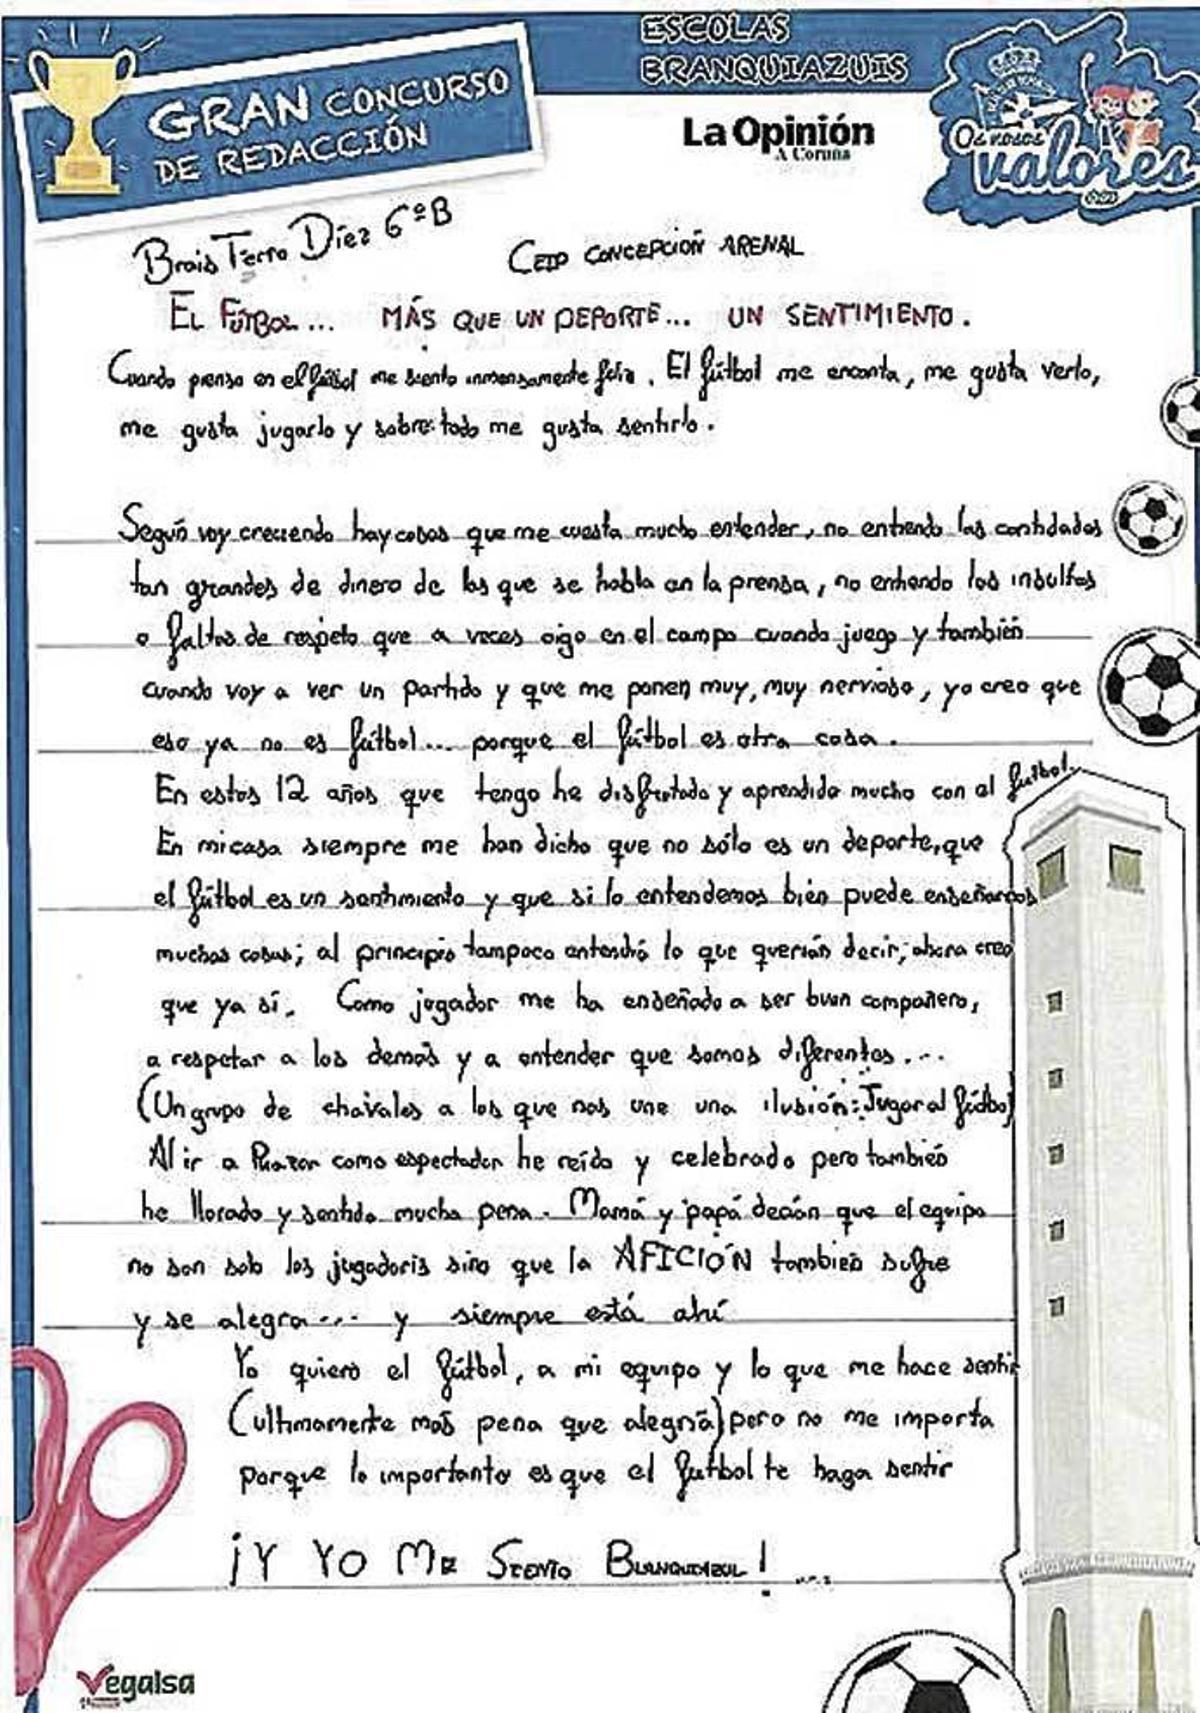 ESCOLAS
BRANQUIAZUIS
GRAN CONCURSO
DE REDACCIÓN
La Opinión
A Coruña
Os nosos
valores
Brais Terro Díez 6ºB
CEIP CONCEPCIÓN ARENAL
EL FÚTBOL... MÁS QUE UN DEPORTE... UN SENTIMIENTO.
Cuando pienso en el fútbol me siento inmensamente feliz. El fútbol me encanta, me gusta verlo,
me gusta jugarlo y sobre todo me gusta sentirlo.
Según voy creciendo hay cosas que me cuesta mucho entender, no entiendo las cantidades
tan grandes de dinero de las que se habla en la prensa, no entiendo los insultos
o faltas de respeto que a veces oigo en el campo cuando juego y también
cuando voy a ver un partido y que me ponen muy, muy nervioso, yo creo que
eso ya no es fútbol... porque el fútbol es otra cosa.
En estos 12 años que tengo he disfrutado y aprendido mucho con el futbol.
En mi casa siempre me han dicho que no sólo es un deporte, que
el fútbol es un sentimiento y que si lo entendemos bien puede enseñarnos
muchas cosas; al principio tampoco entendía lo que querían decir, ahora creo
que ya sí. Como jugador me ha enseñado a ser buen compañero,
a respetar a los demás y a entender que somos diferentes....
(Un grupo de chavales a los que nos une una ilusión: Jugar al fútbol)
Al ir a Riazor como espectador he reído y celebrado pero también
he llorado y sentido mucha pena. Mamá y papá decían que el equipo
no son solo los jugadores sino que la AFICIÓN también sufre
y se alegra... y siempre está ahí
Yo quiero el fútbol, a mi equipo y lo que me hace sentir
(ultimamente más pena que alegría) pero no me importa
porque lo importante es que el futbol te haga sentir
¡Y YO ME SIENTO BLANQUIAZUL!...
Vegalsa